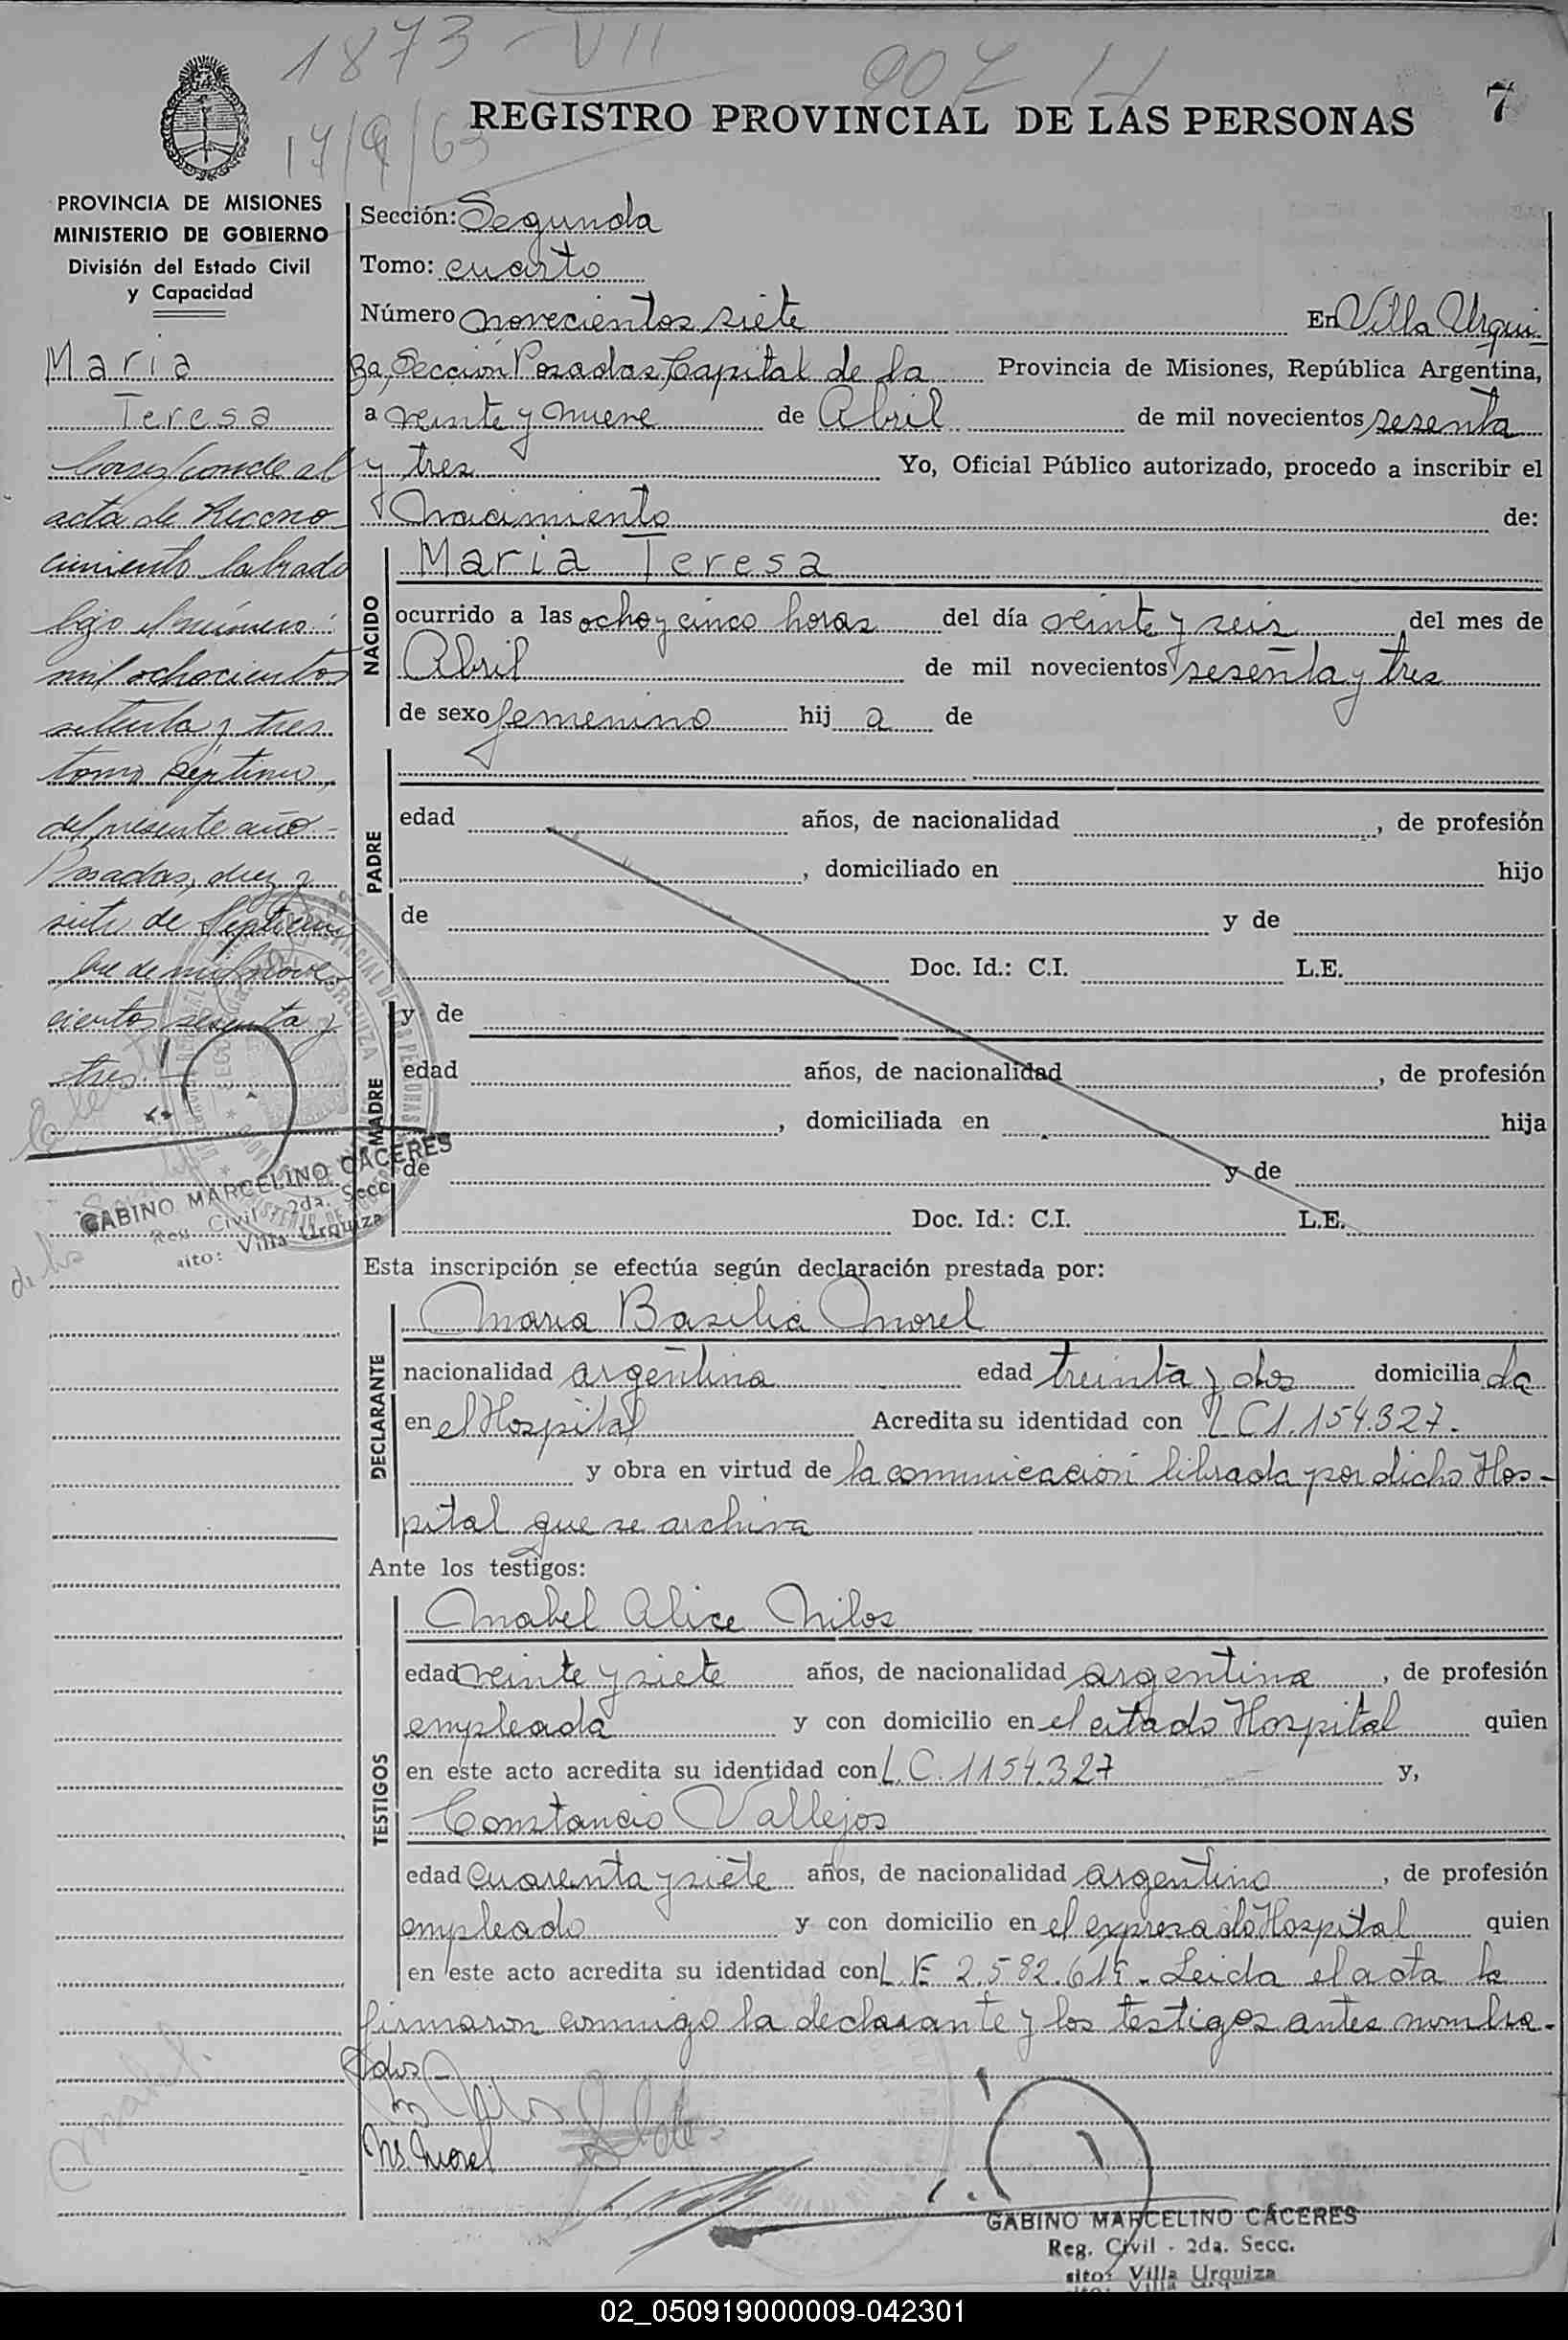 1873 - VII
907 H
17/9/63
REGISTRO PROVINCIAL DE LAS PERSONAS 7
PROVINCIA DE MISIONES
MINISTERIO DE GOBIERNO
División del Estado Civil
y Capacidad
Maria
Teresa
Corresponde al
acta de Recono-
cimiento labrada
bajo el número:
mil ochocientos
setenta y tres
tomo séptimo,
del presente año-
Posadas, diez y
siete de Septiem
bre de mil nove
cientos sesenta y
tres.
GABINO MARCELINO CÁCERES
Reg. Civil - 2da. Secc.
sito: Villa Urquiza
Sección: Segunda
Tomo: cuarto
Número novecientos siete En Villa Urqui-
za, Sección Posadas, Capital de la Provincia de Misiones, República Argentina,
a veinte y nueve de Abril de mil novecientos sesenta
y tres Yo, Oficial Público autorizado, procedo a inscribir el
Nacimiento de:
NACIDO
Maria Teresa
ocurrido a las ocho y cinco horas del día veinte y seis del mes de
Abril de mil novecientos sesenta y tres
de sexo femenino hij a de
PADRE
edad años, de nacionalidad , de profesión
, domiciliado en hijo
de y de
Doc. Id.: C.I. L.E.
MADRE
y de
edad años, de nacionalidad , de profesión
, domiciliada en hija
de y de
Doc. Id.: C.I. L.E.
Esta inscripción se efectúa según declaración prestada por:
DECLARANTE
Maria Basilia Morel
nacionalidad argentina edad treinta y dos domicilia da
en el Hospital Acredita su identidad con L C 1.154.327.
y obra en virtud de la comunicación librada por dicho Hos-
pital que se archiva
Ante los testigos:
TESTIGOS
Mabel Alice Nilos
edad veinte y siete años, de nacionalidad argentina , de profesión
empleada y con domicilio en el citado Hospital quien
en este acto acredita su identidad con L.C. 1154.327 y,
Constancio Vallejos
edad cuarenta y siete años, de nacionalidad argentino , de profesión
empleado y con domicilio en el expresado Hospital quien
en este acto acredita su identidad con L.E 2.582.615. Leida el acta la
firmaron conmigo la declarante y los testigos antes nombra-
dos-
M. Nilos
Ms. Morel
GABINO MARCELINO CÁCERES
Reg. Civil - 2da. Secc.
sito: Villa Urquiza
02_050919000009-042301